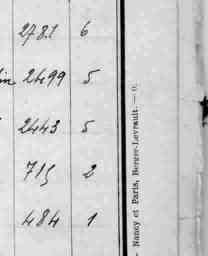 2781 6
in 2499 5
2443 5
715 2
484 1
- Nancy et Paris, Berger-Levrault. — 0.